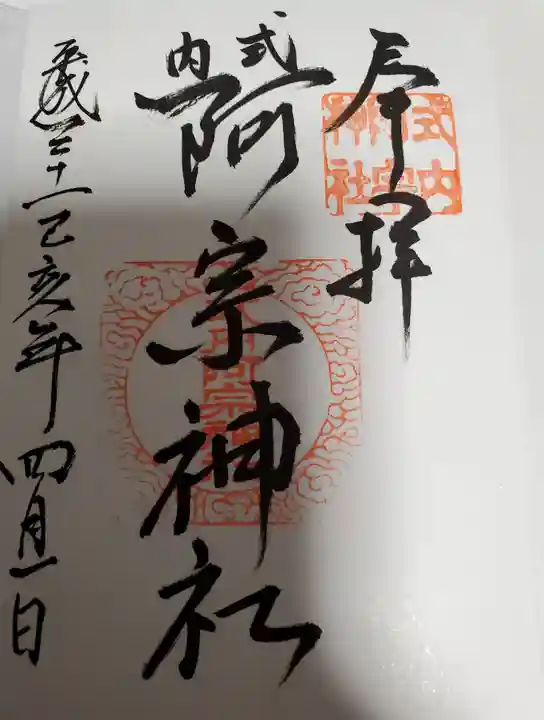 奉拝
式内
阿宗神社
平成三十一己亥年四月一日
式内
阿宗
神社